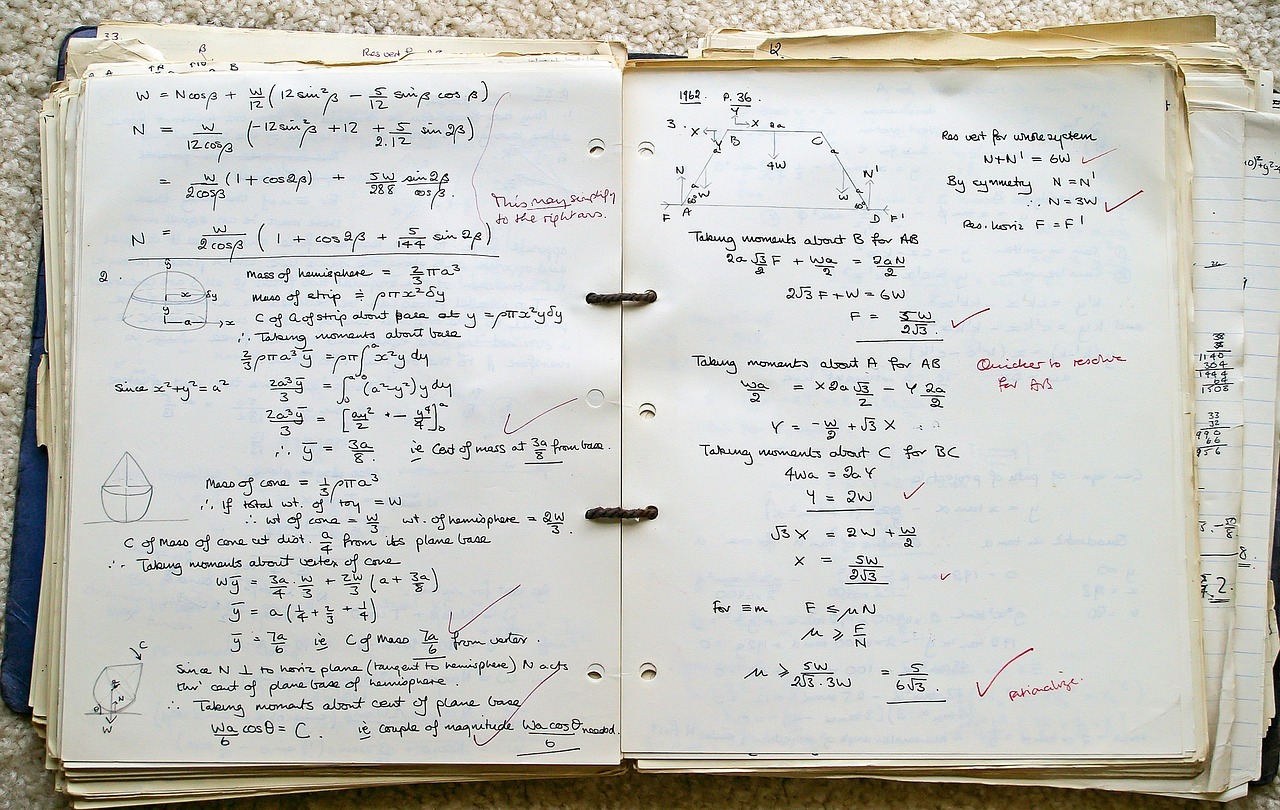 33.
β
Res vert
W = N cos β + W/12 (12 sin²β − 5/12 sin β cos β)
N = W/12cosβ (−12 sin²β + 12 + 5/2.12 sin 2β)
= W/2cosβ (1 + cos 2β) + 5W/288 sin 2β/cos β.
This may simplify
to the right ans.
N = W/2cosβ (1 + cos 2β + 5/144 sin 2β)
2.
y
x
δy
y
a
x
Mass of hemisphere = 2/3 πa³
Mass of strip ≑ ρπx²δy
C of G of strip about base at y = ρπx²yδy
∴ Taking moments about base
2/3 ρπa³ȳ = ρπ∫₀ᵃ x²y dy
Since x²+y²=a² 2a³ȳ/3 = ∫₀ᵃ (a²−y²) y dy
2a³ȳ/3 = [ay²/2 − y⁴/4]₀ᵃ
∴ ȳ = 3a/8 ie Cent of mass at 3a/8 from base.
Mass of cone = 1/3 ρπa³
∴ If total wt. of toy = W
∴ wt of cone = W/3 wt. of hemisphere = 2W/3.
C of Mass of cone at dist. a/4 from its plane base
∴ Taking moments about vertex of cone
Wȳ = 3a/4 . W/3 + 2W/3 (a + 3a/8)
ȳ = a(1/4 + 2/3 + 1/4)
ȳ = 7a/6 ie C of Mass 7a/6 from vertex.
C
θ
N
W
Since N ⊥ to horiz plane (tangent to hemisphere) N acts
thro' cent of plane base of hemisphere.
∴ Taking moments about cent of plane base
Wa/6 cosθ = C. ie couple of magnitude Wa cosθ/6 needed.
12.
1962. P. 36.
3.
Y
X
2a
X
B
C
Y
a
a
4W
N
N'
a
a
W
W
60°
60°
F
A
D
F'
Res vert for whole system
N+N' = 6W
By symmetry N = N'
∴ N = 3W
Res. horiz F = F'
Taking moments about B for AB
2a √3/2 F + Wa/2 = 2aN/2
2√3 F + W = 6W
F = 5W/2√3.
Taking moments about A for AB
Quicker to resolve
for AB
Wa/2 = X 2a √3/2 − Y 2a/2
Y = −W/2 + √3 X
Taking moments about C for BC
4Wa = 2aY
Y = 2W
√3 X = 2W + W/2
X = 5W/2√3
For ≡m F ≤ μN
μ ≥ F/N
μ ≥ 5W/2√3.3W = 5/6√3.
rationalize.
38
38
1140
304
1444
64
1508
33
32
990
66
956